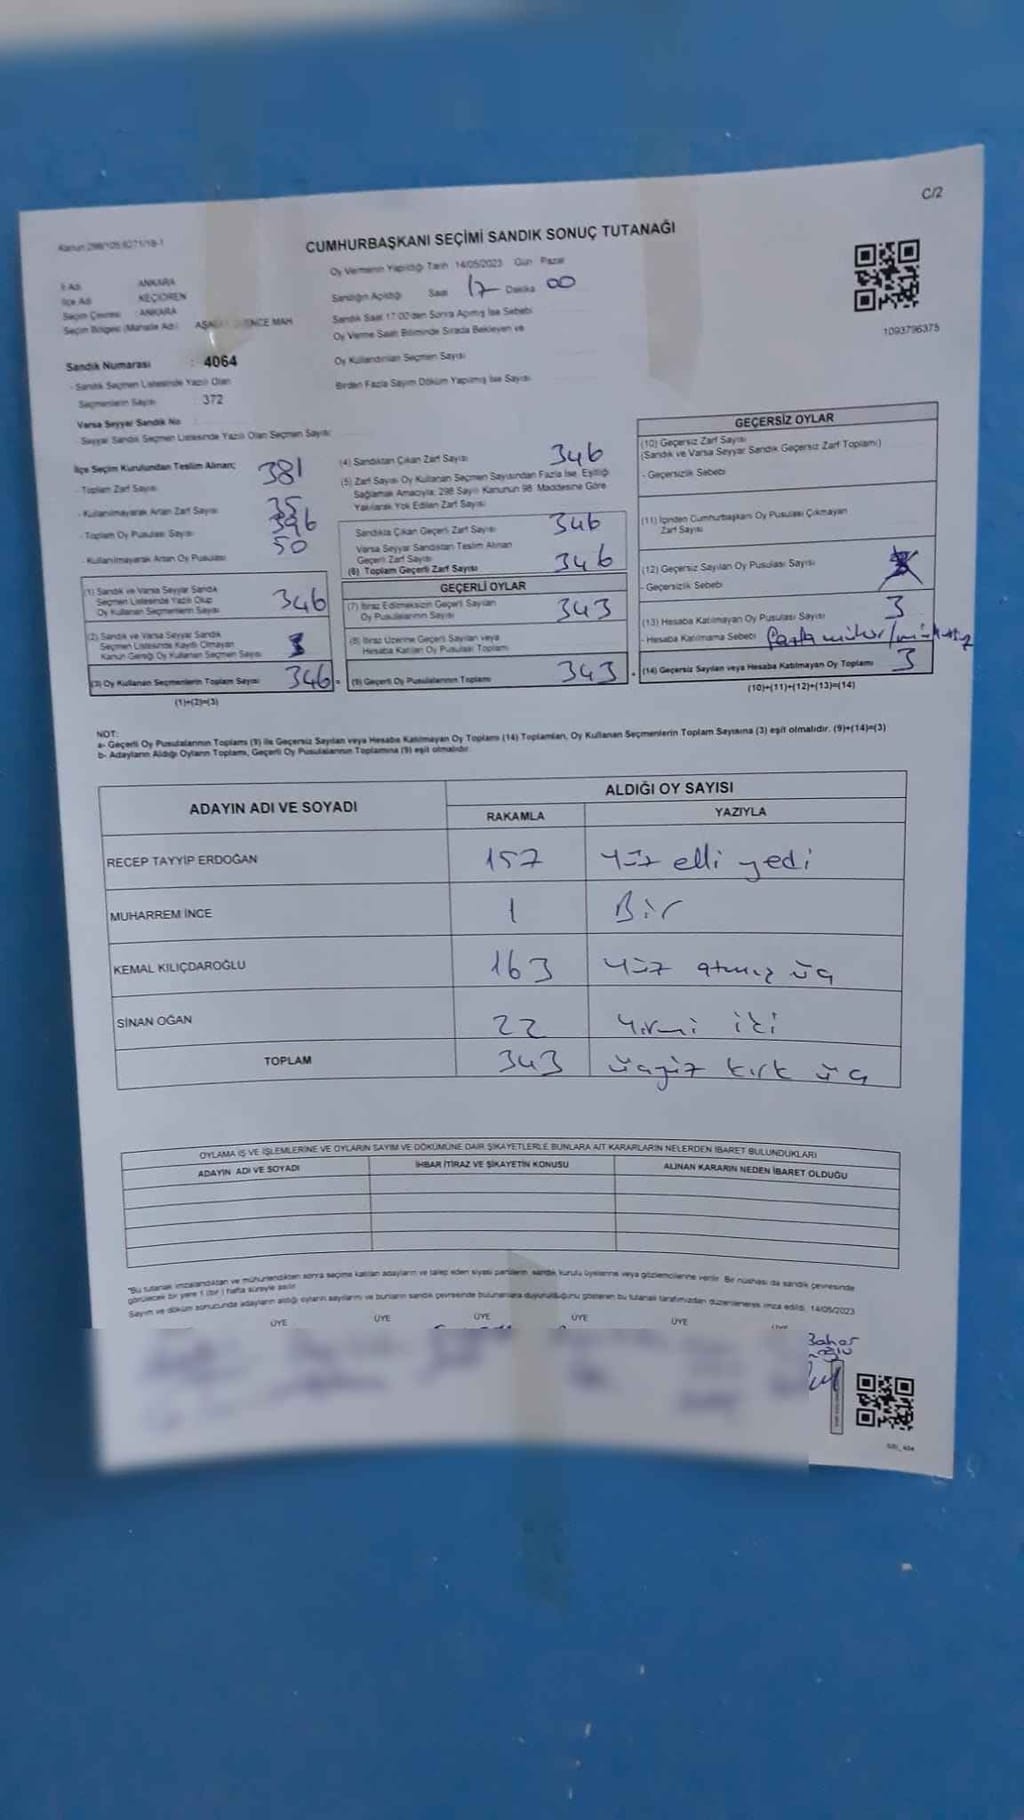 C/2
CUMHURBAŞKANI SEÇİMİ SANDIK SONUÇ TUTANAĞI
İl Adı : ANKARA
İlçe Adı : KEÇİÖREN
Seçim Çevresi : ANKARA
Seçim Bölgesi (Mahalle Adı) : MAH
Sandık Numarası : 4064
- Sandık Seçmen Listesinde Yazılı Olan
Seçmenlerin Sayısı : 372
Varsa Seyyar Sandık No
- Seyyar Sandık Seçmen Listesinde Yazılı Olan Seçmen Sayısı
Oy Vermenin Yapıldığı Tarih 14/05/2023 Gün Pazar
Sandığın Açıldığı Saat 17 Dakika 00
Sandık Saat 17:00'den Sonra Açılmış İse Sebebi
Oy Verme Saati Bitiminde Sırada Bekleyen ve
Oy Kullandırılan Seçmen Sayısı
Birden Fazla Sayım Döküm Yapılmış İse Sayısı
1093796375
İlçe Seçim Kurulundan Teslim Alınan;
- Toplam Zarf Sayısı 381
- Kullanılmayarak Artan Zarf Sayısı 35
- Toplam Oy Pusulası Sayısı 396
- Kullanılmayarak Artan Oy Pusulası 50
(1) Sandık ve Varsa Seyyar Sandık
Seçmen Listesinde Yazılı Olup
Oy Kullanan Seçmenlerin Sayısı 346
(2) Sandık ve Varsa Seyyar Sandık
Seçmen Listesinde Kayıtlı Olmayan
Kanun Gereği Oy Kullanan Seçmen Sayısı
(3) Oy Kullanan Seçmenlerin Toplam Sayısı 346 =
(1)+(2)=(3)
(4) Sandıktan Çıkan Zarf Sayısı 346
(5) Zarf Sayısı Oy Kullanan Seçmen Sayısından Fazla İse, Eşitliği
Sağlamak Amacıyla; 298 Sayılı Kanunun 98. Maddesine Göre
Yakılarak Yok Edilen Zarf Sayısı
Sandıkta Çıkan Geçerli Zarf Sayısı 346
Varsa Seyyar Sandıktan Teslim Alınan
Geçerli Zarf Sayısı
(6) Toplam Geçerli Zarf Sayısı 346
GEÇERLİ OYLAR
(7) İtiraz Edilmeksizin Geçerli Sayılan
Oy Pusulalarının Sayısı 343
(8) İtiraz Üzerine Geçerli Sayılan veya
Hesaba Katılan Oy Pusulası Toplamı
(9) Geçerli Oy Pusulalarının Toplamı 343
GEÇERSİZ OYLAR
(10) Geçersiz Zarf Sayısı
(Sandık ve Varsa Seyyar Sandık Geçersiz Zarf Toplamı)
- Geçersizlik Sebebi
(11) İçinden Cumhurbaşkanı Oy Pusulası Çıkmayan
Zarf Sayısı
(12) Geçersiz Sayılan Oy Pusulası Sayısı
- Geçersizlik Sebebi
(13) Hesaba Katılmayan Oy Pusulası Sayısı 3
- Hesaba Katılmama Sebebi
(14) Geçersiz Sayılan veya Hesaba Katılmayan Oy Toplamı 3
(10)+(11)+(12)+(13)=(14)
NOT:
a- Geçerli Oy Pusulalarının Toplamı (9) ile Geçersiz Sayılan veya Hesaba Katılmayan Oy Toplamı (14) Toplamları, Oy Kullanan Seçmenlerin Toplam Sayısına (3) eşit olmalıdır. (9)+(14)=(3)
b- Adayların Aldığı Oyların Toplamı, Geçerli Oy Pusulalarının Toplamına (9) eşit olmalıdır.
ADAYIN ADI VE SOYADI ALDIĞI OY SAYISI
RAKAMLA YAZIYLA
RECEP TAYYİP ERDOĞAN 157 Yüz elli yedi
MUHARREM İNCE 1 Bir
KEMAL KILIÇDAROĞLU 163 Yüz atmış üç
SİNAN OĞAN 22 Yirmi iki
TOPLAM 343 üçyüz kırk üç
OYLAMA İŞ VE İŞLEMLERİNE VE OYLARIN SAYIM VE DÖKÜMÜNE DAİR ŞİKAYETLERLE BUNLARA AİT KARARLARIN NELERDEN İBARET BULUNDUKLARI
ADAYIN ADI VE SOYADI İHBAR İTİRAZ VE ŞİKAYETİN KONUSU ALINAN KARARIN NEDEN İBARET OLDUĞU
"Bu tutanak imzalandıktan ve mühürlendikten sonra seçime katılan adayların ve talep eden siyasi partilerin, sandık kurulu üyelerine veya gözlemcilerine verilir. Bir nüshası da sandık çevresinde
görülecek bir yere 1 (bir) hafta süreyle asılır.
Sayım ve döküm sonucunda adayların aldığı oyların sayılarını ve bunların sandık çevresinde bulunanlara duyurulduğunu gösteren bu tutanak tarafımızdan düzenlenerek imza edildi. 14/05/2023
ÜYE ÜYE ÜYE ÜYE ÜYE